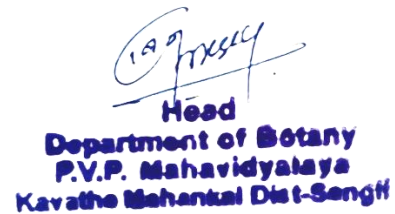 Head
Department of Botany
P.V.P. Mahavidyalaya
Kavathe Mahankal Dist-Sangli